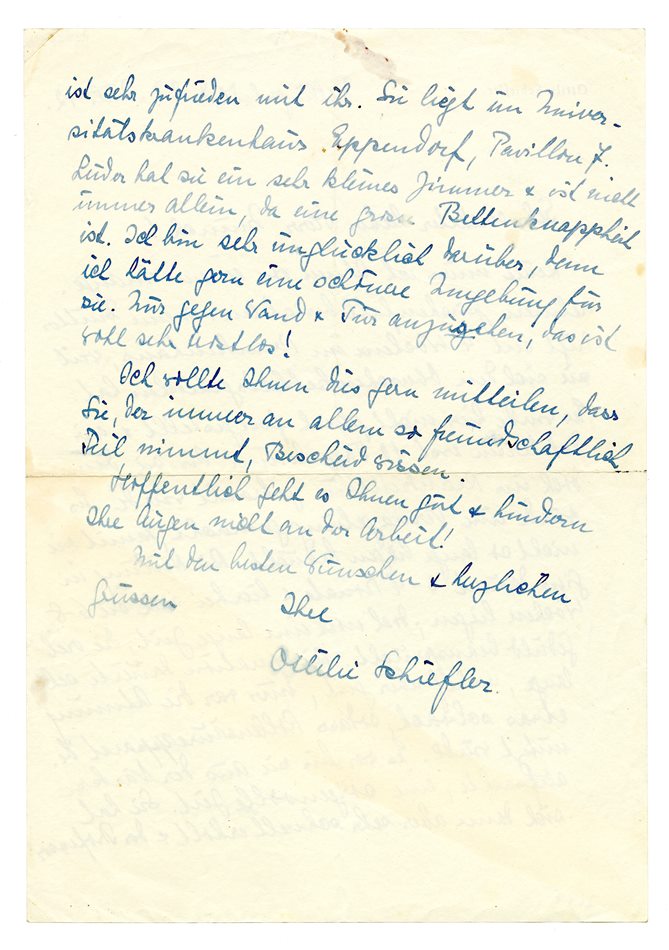 ist sehr zufrieden mit ihr. Sie liegt im Univer-
sitätskrankenhaus Eppendorf, Pavillon 7.
Leider hat sie ein sehr kleines Zimmer & ist nicht
immer allein, da eine grosse Bettenknappheit
ist. Ich bin sehr unglücklich darüber, denn
ich hätte gern eine schönere Umgebung für
sie. Nur gegen Wand & Tür anzusehen, das ist
wohl sehr trostlos!
Ich wollte Ihnen dies gern mitteilen, dass
Sie, der immer an allem so freundschaftlich
Teil nimmt, Bescheid wissen.
Hoffentlich geht es Ihnen gut & hindern
Ihre Augen nicht an der Arbeit!
Mit den besten Wünschen & herzlichen
Grüssen Ihre
Ottilie Schiefler.